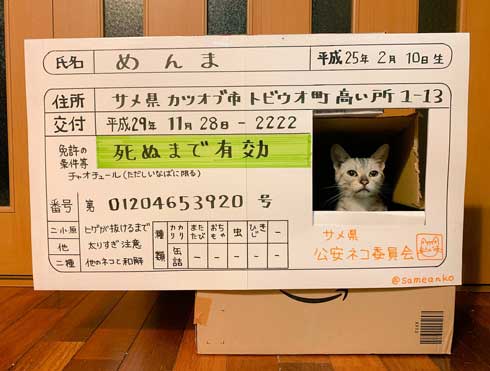 氏名 めんま 平成25年 2月 10日生
住所 サメ県 カツオブ市 トビウオ町 高い所 1-13
交付 平成29年 11月 28日 - 2222
免許の条件等 死ぬまで有効
チャオチュール(ただしいなばに限る)
番号 第 01204653920 号
二・小・原 ヒゲが抜けるまで
他 太りすぎ注意
二種 他のネコと和解
種類 カリカリ またたび おもちゃ 虫 ひじき -
缶詰 - - - - -
サメ県
公安ネコ委員会
@sameanko